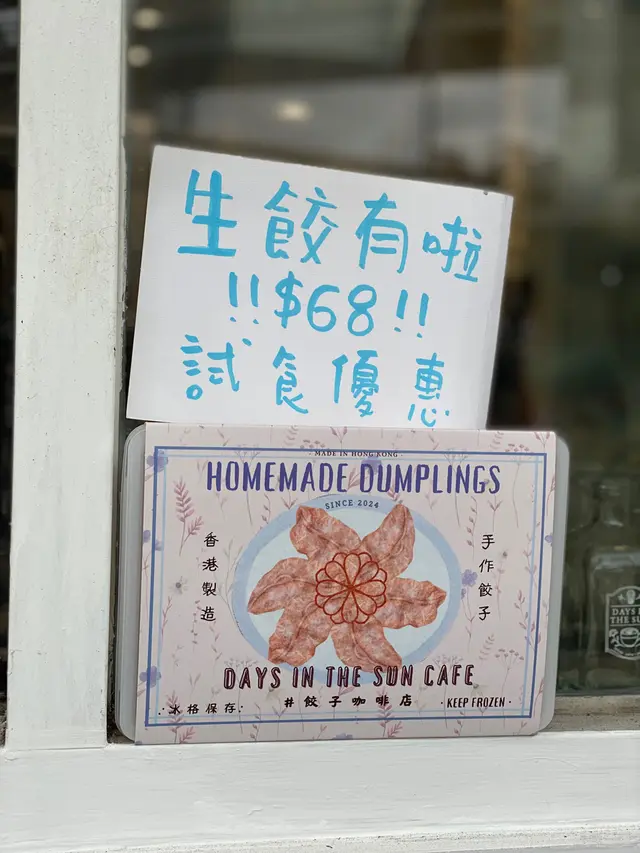 生餃有啦
!!$68!!
試食優惠
· MADE IN HONG KONG ·
HOMEMADE DUMPLINGS
SINCE 2024
香港製造
手作餃子
DAYS IN THE SUN CAFE
·冰格保存·
#餃子咖啡店
· KEEP FROZEN ·
DAYS
THE SU